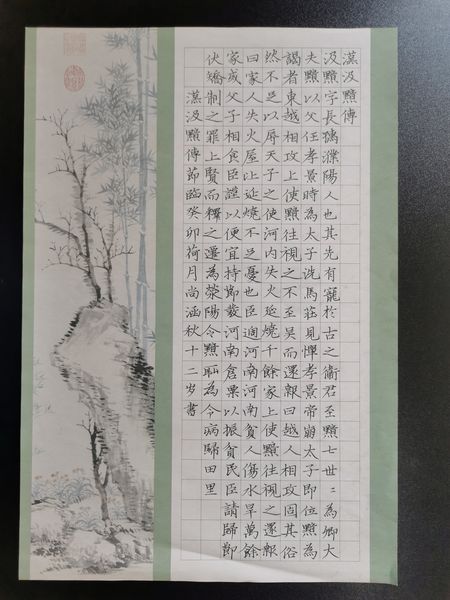 漢汲黯傳
汲黯字長孺濮陽人也其先有寵於古之衛君至黯七世〻為卿大
夫黯以父任孝景時為太子洗馬莊見憚孝景帝崩太子即位黯為
謁者東越相攻上使黯往視之不至吳而還報曰越人相攻固其俗
然不足以辱天子之使河内失火延燒千餘家上使黯往視之還報
曰家人失火屋比延燒不足憂也臣過河南河南貧人傷水旱萬餘
家或父子相食臣謹以便宜持節發河南倉粟以振貧民臣請歸節
伏矯制之罪上賢而釋之遷為滎陽令黯恥為令病歸田里
漢汲黯傳節臨癸卯荷月尚涵秋十二岁書